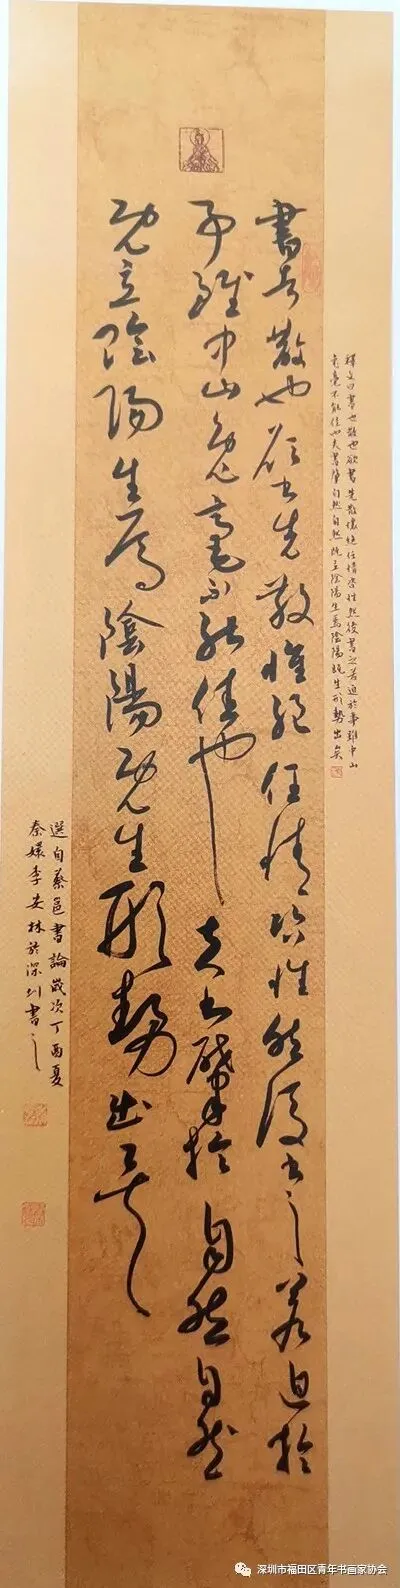 釋文曰書也散也欲書先散懷絕任情恣性然後書之若迫於事雖中山
兔毫不能佳也夫書肇自然自然既立陰陽生焉陰陽既生形勢出矣
書者散也欲書先散懷絕任情恣性然後書之若迫於
事雖中山兔毫不能佳也夫書肇於自然自然
既立陰陽生焉陰陽既生形勢出矣
選自蔡邕書論歲次丁酉夏
秦李安林於深圳書之
深圳市福田区青年书画家协会